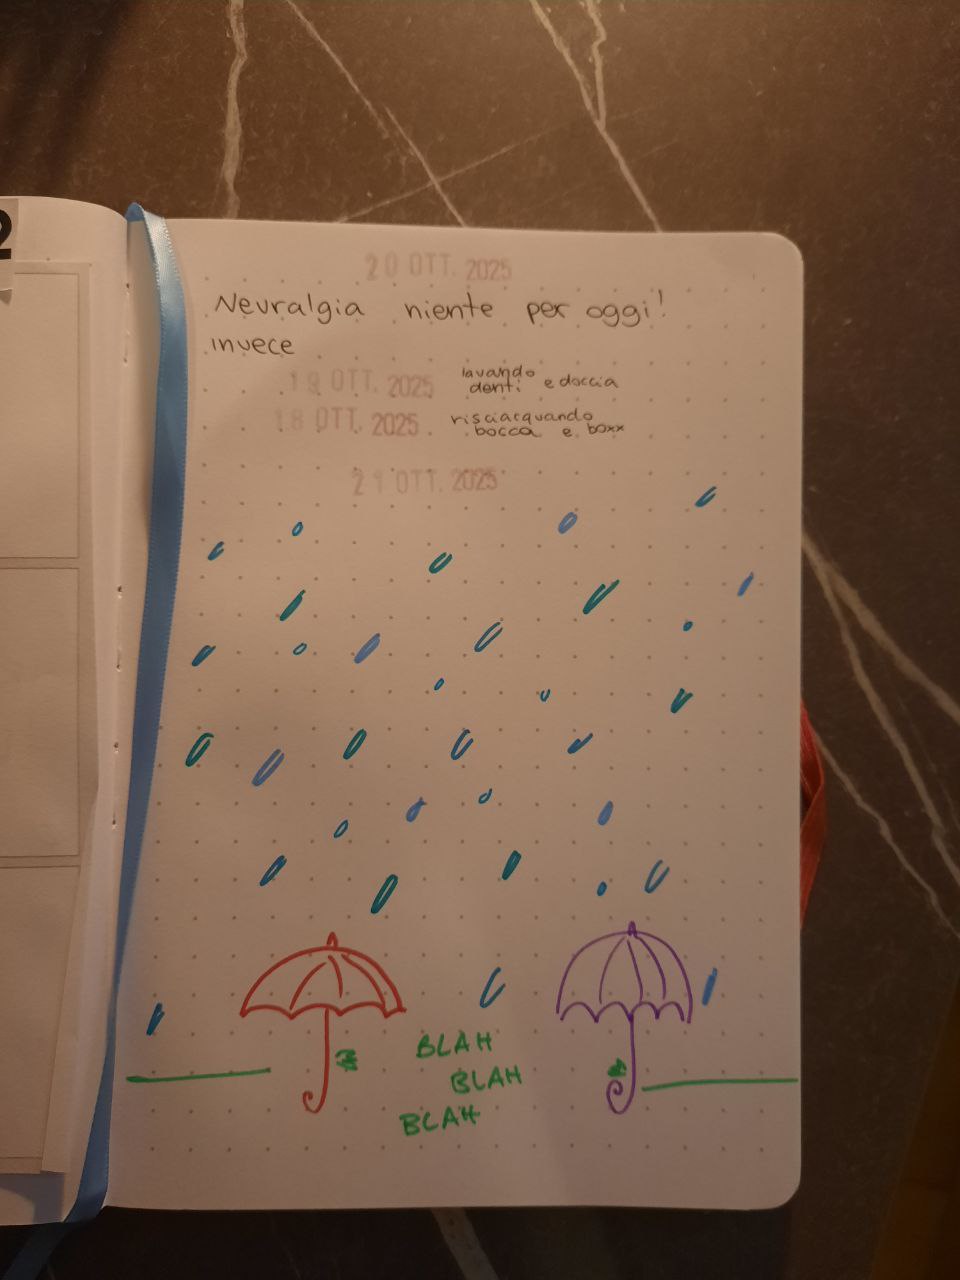 2
20 OTT. 2025
Nevralgia niente per oggi!
invece
19 OTT. 2025 lavando
denti e doccia
18 OTT. 2025 risciacquando
bocca e boxx
21 OTT. 2025
BLAH
BLAH
BLAH